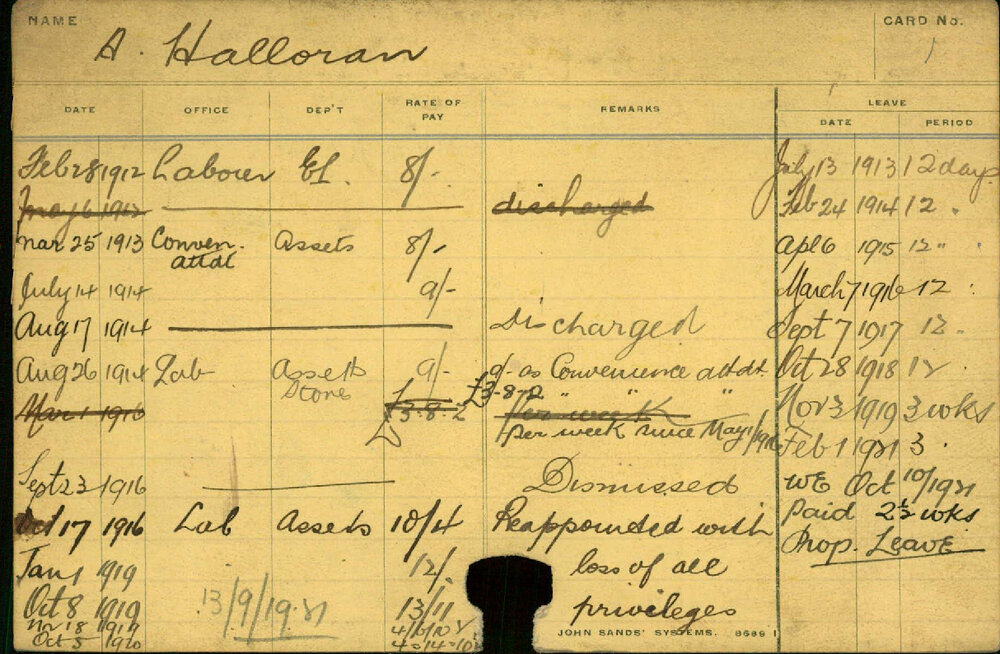 NAME
A. Halloran
CARD No.
1
DATE OFFICE DEP'T RATE OF PAY REMARKS
LEAVE
DATE PERIOD
Feb 28 1912 Labourer El. 8/-
May 6 1912 discharged
Mar 25 1913 Conven. attdt Assets 8/-
July 14 1914 9/-
Aug 17 1914 Discharged
Aug 26 1914 Lab Assets Store 9/- 9/- as Convenience attdt.
£3-8-2 " "
Mar 1 1916 £3-8-2 per week
per week since May 1/1916
Sept 23 1916 Dismissed
Oct 17 1916 Lab Assets 10/4 Reappointed with
Jan 1 1919 12/- loss of all
Oct 8 1919 13/9/1921 13/11 privileges
Nov 18 1919
Oct 5 1920
July 13 1913 12 days
Feb 24 1914 12 "
Apl 6 1915 12 "
March 7 1916 12 "
Sept 7 1917 12 "
Oct 28 1918 12
Nov 3 1919 3 wks
Feb 1 1921 3
WE Oct 10/1921
Paid 2½ wks
Prop. Leave
JOHN SANDS' SYSTEMS. 8689